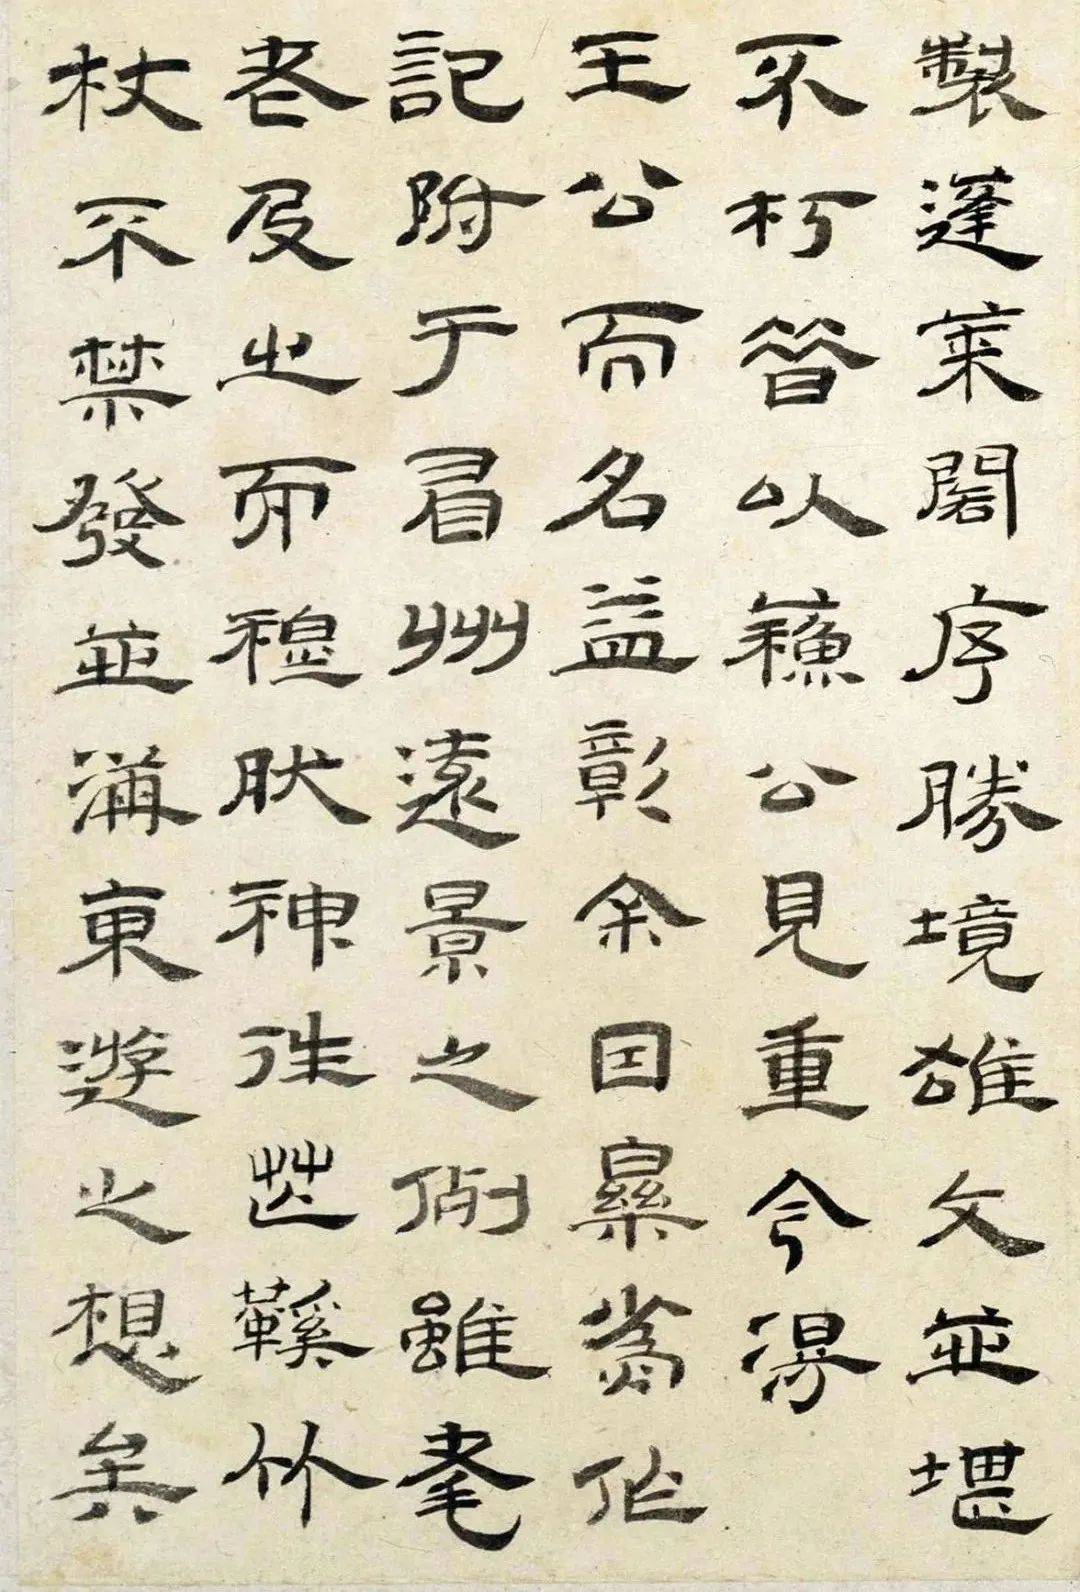 製蓬萊閣序勝境雄文並堪
不朽昔以蘓公見重今得
王公而名益彰余因樂為作
記附于眉州遠景之例雖耄
老及之而穆肰神往芒鞵竹
杖不禁發並海東遊之想矣